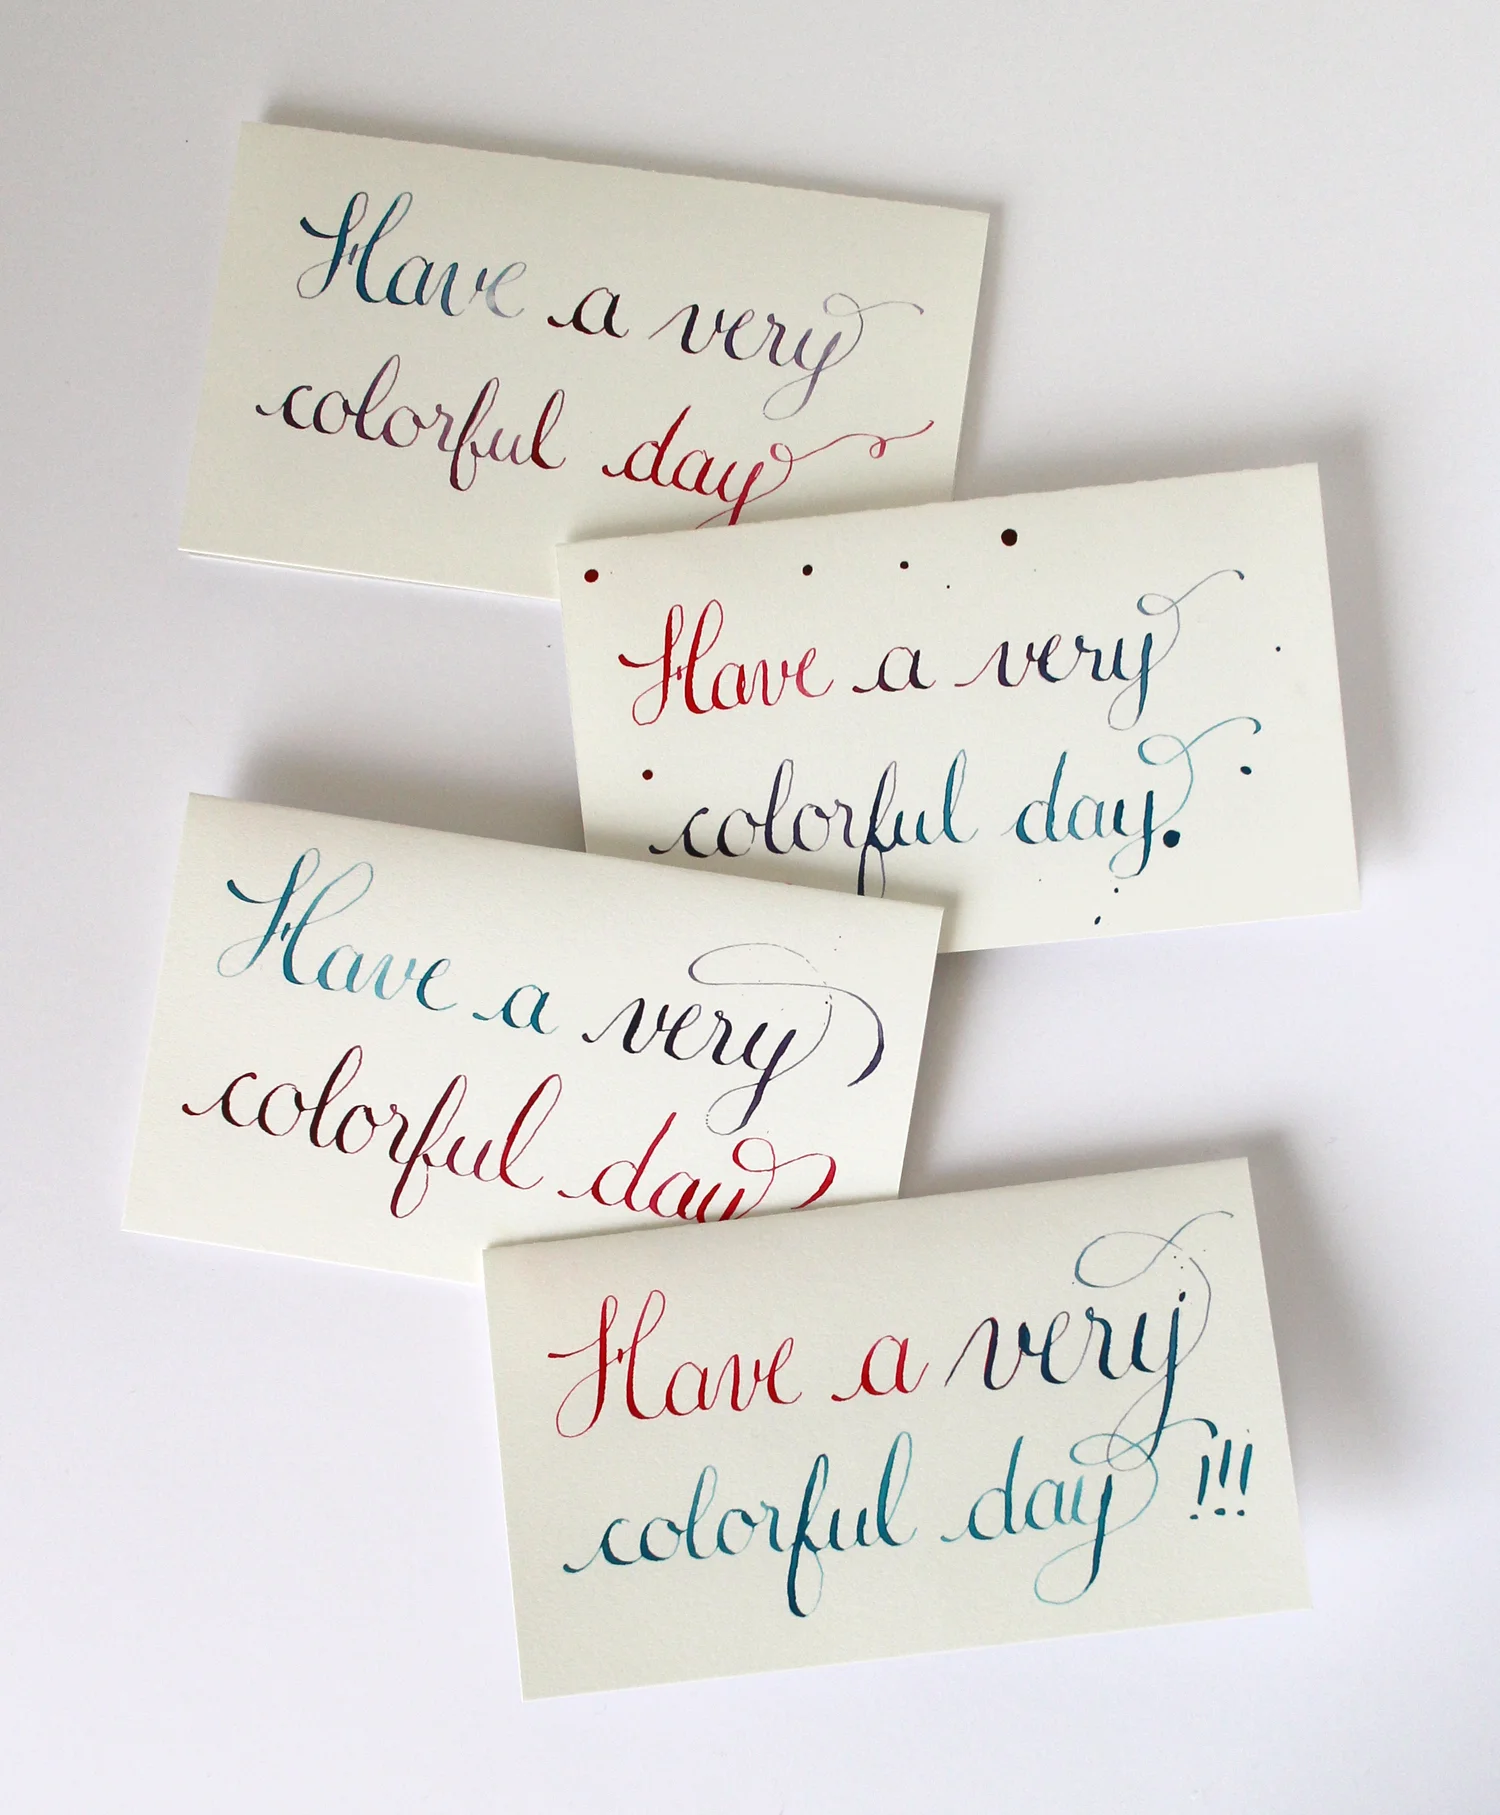 Have a very
colorful day
Have a very
colorful day.
Have a very
colorful day
Have a very
colorful day!!!